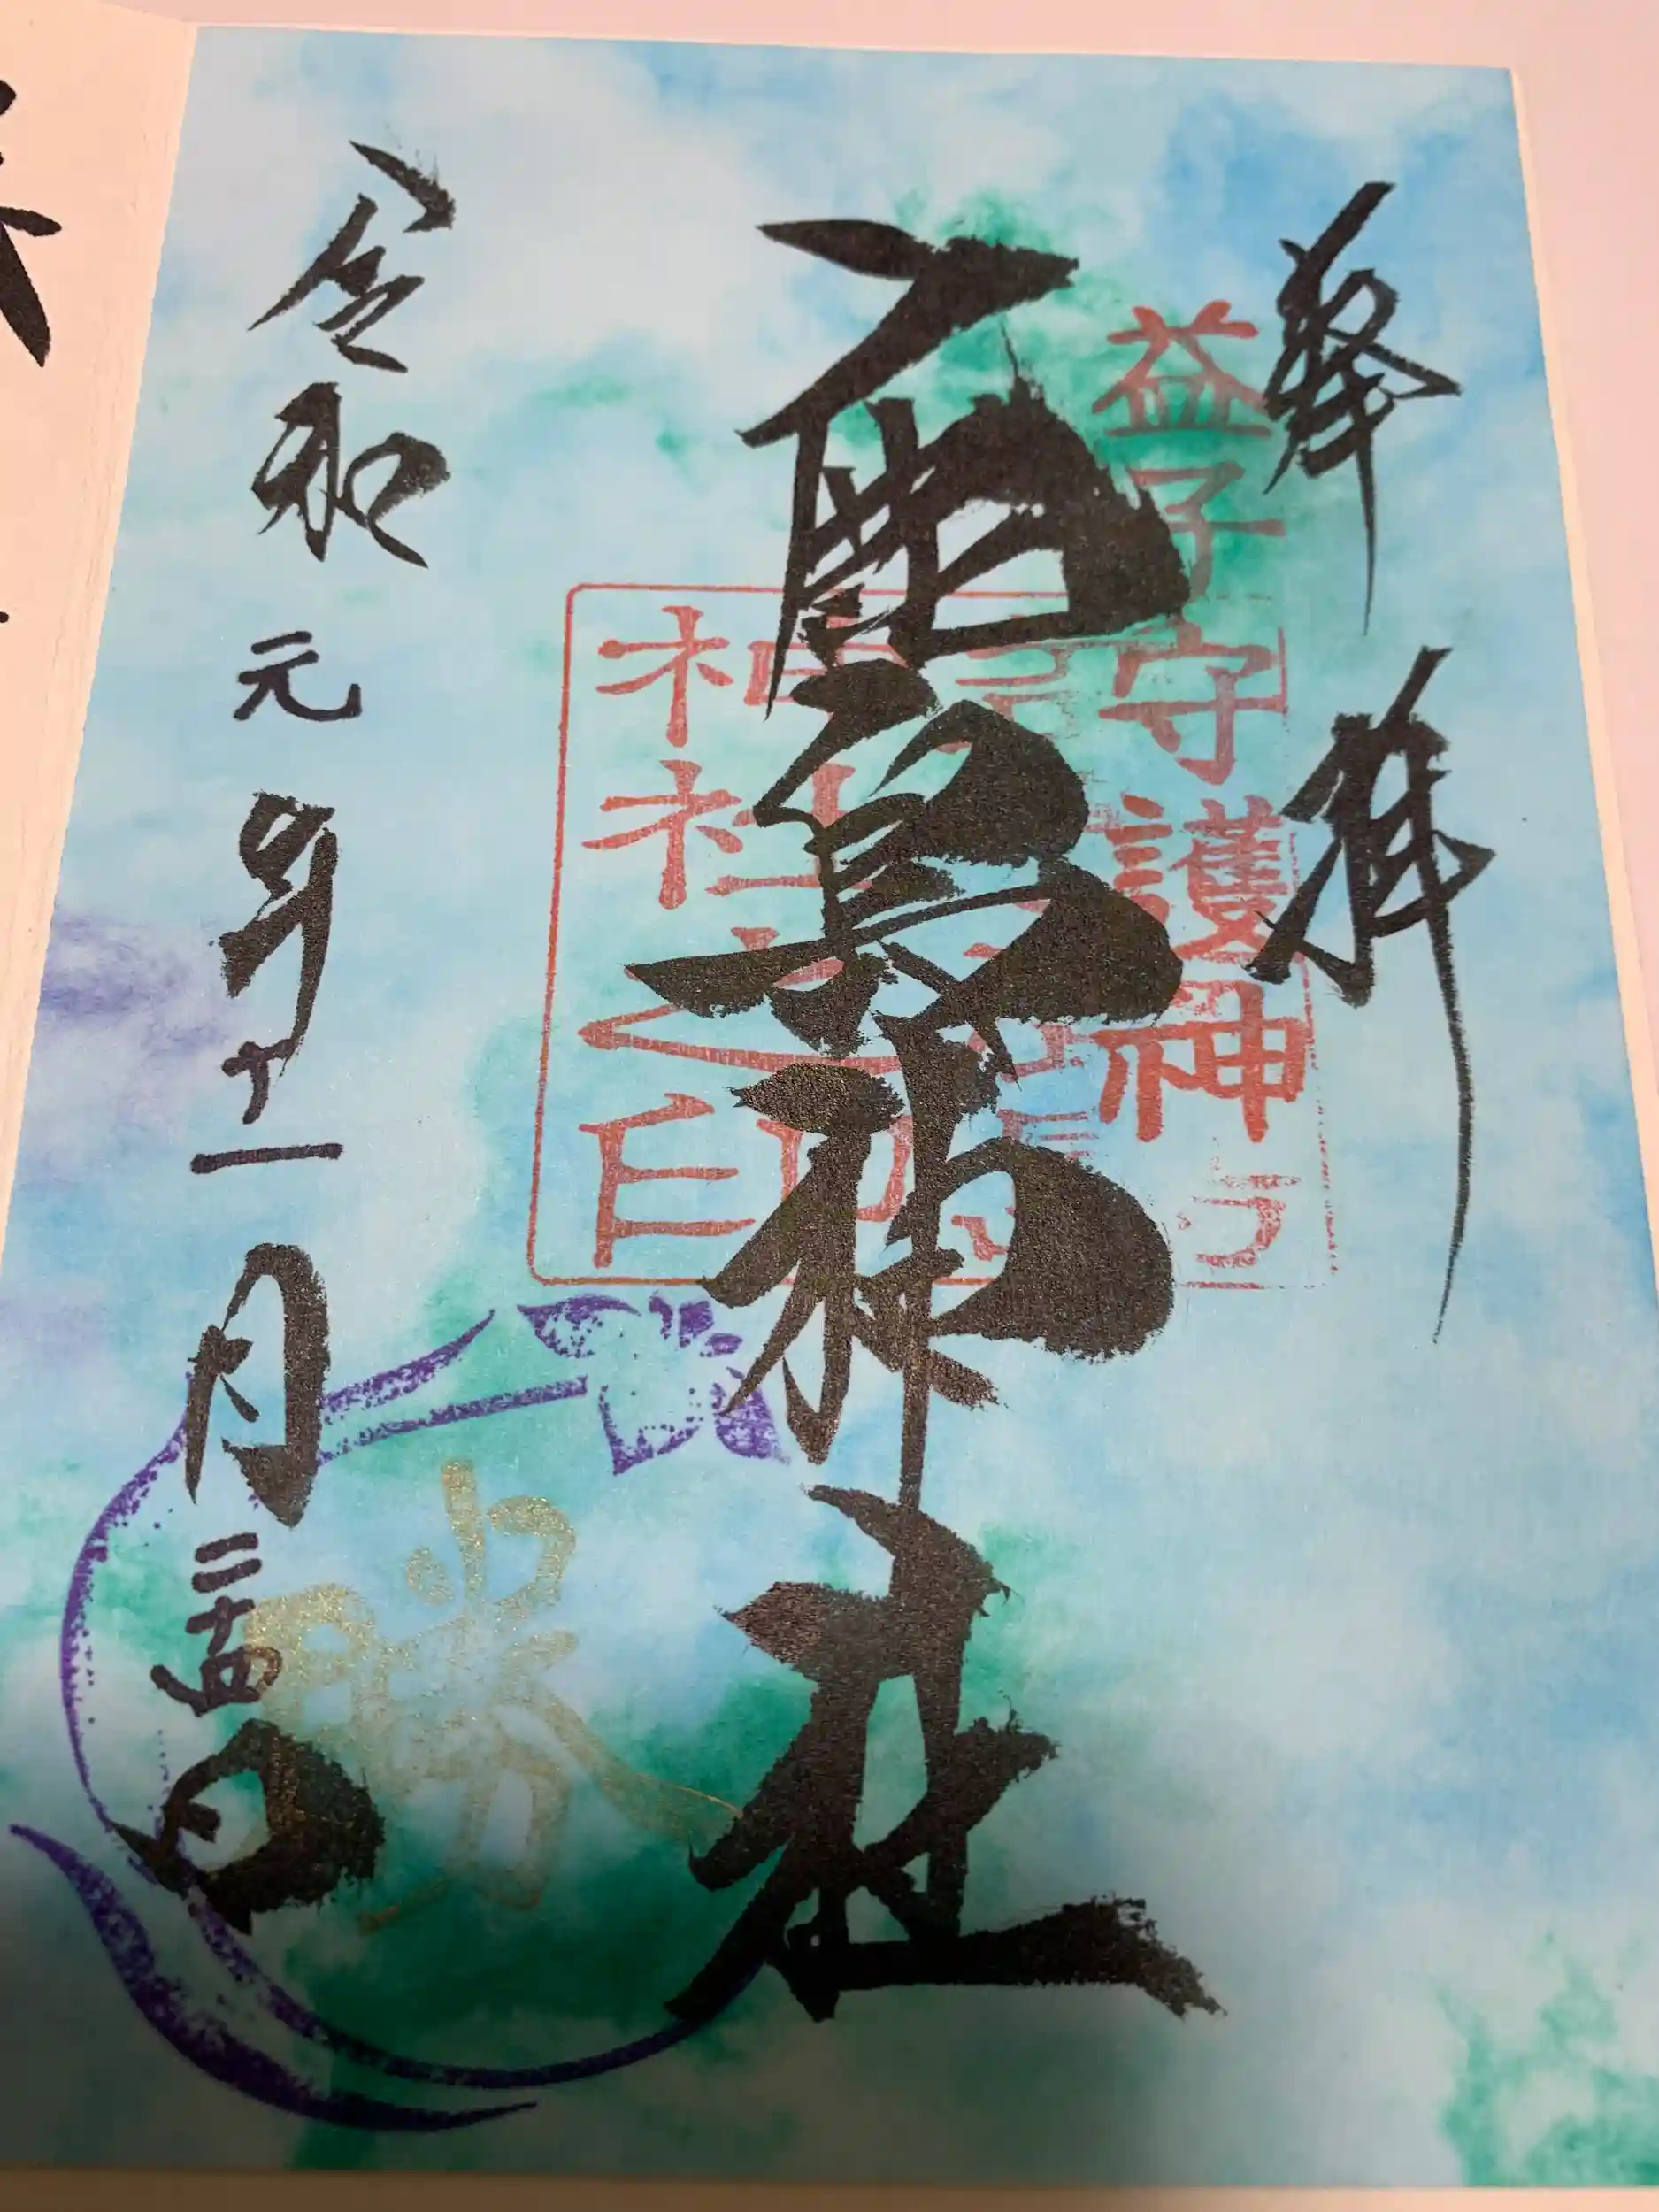 奉拝
益子守護神
鹿島神社
神社之印
勝
令和元年十一月二十四日